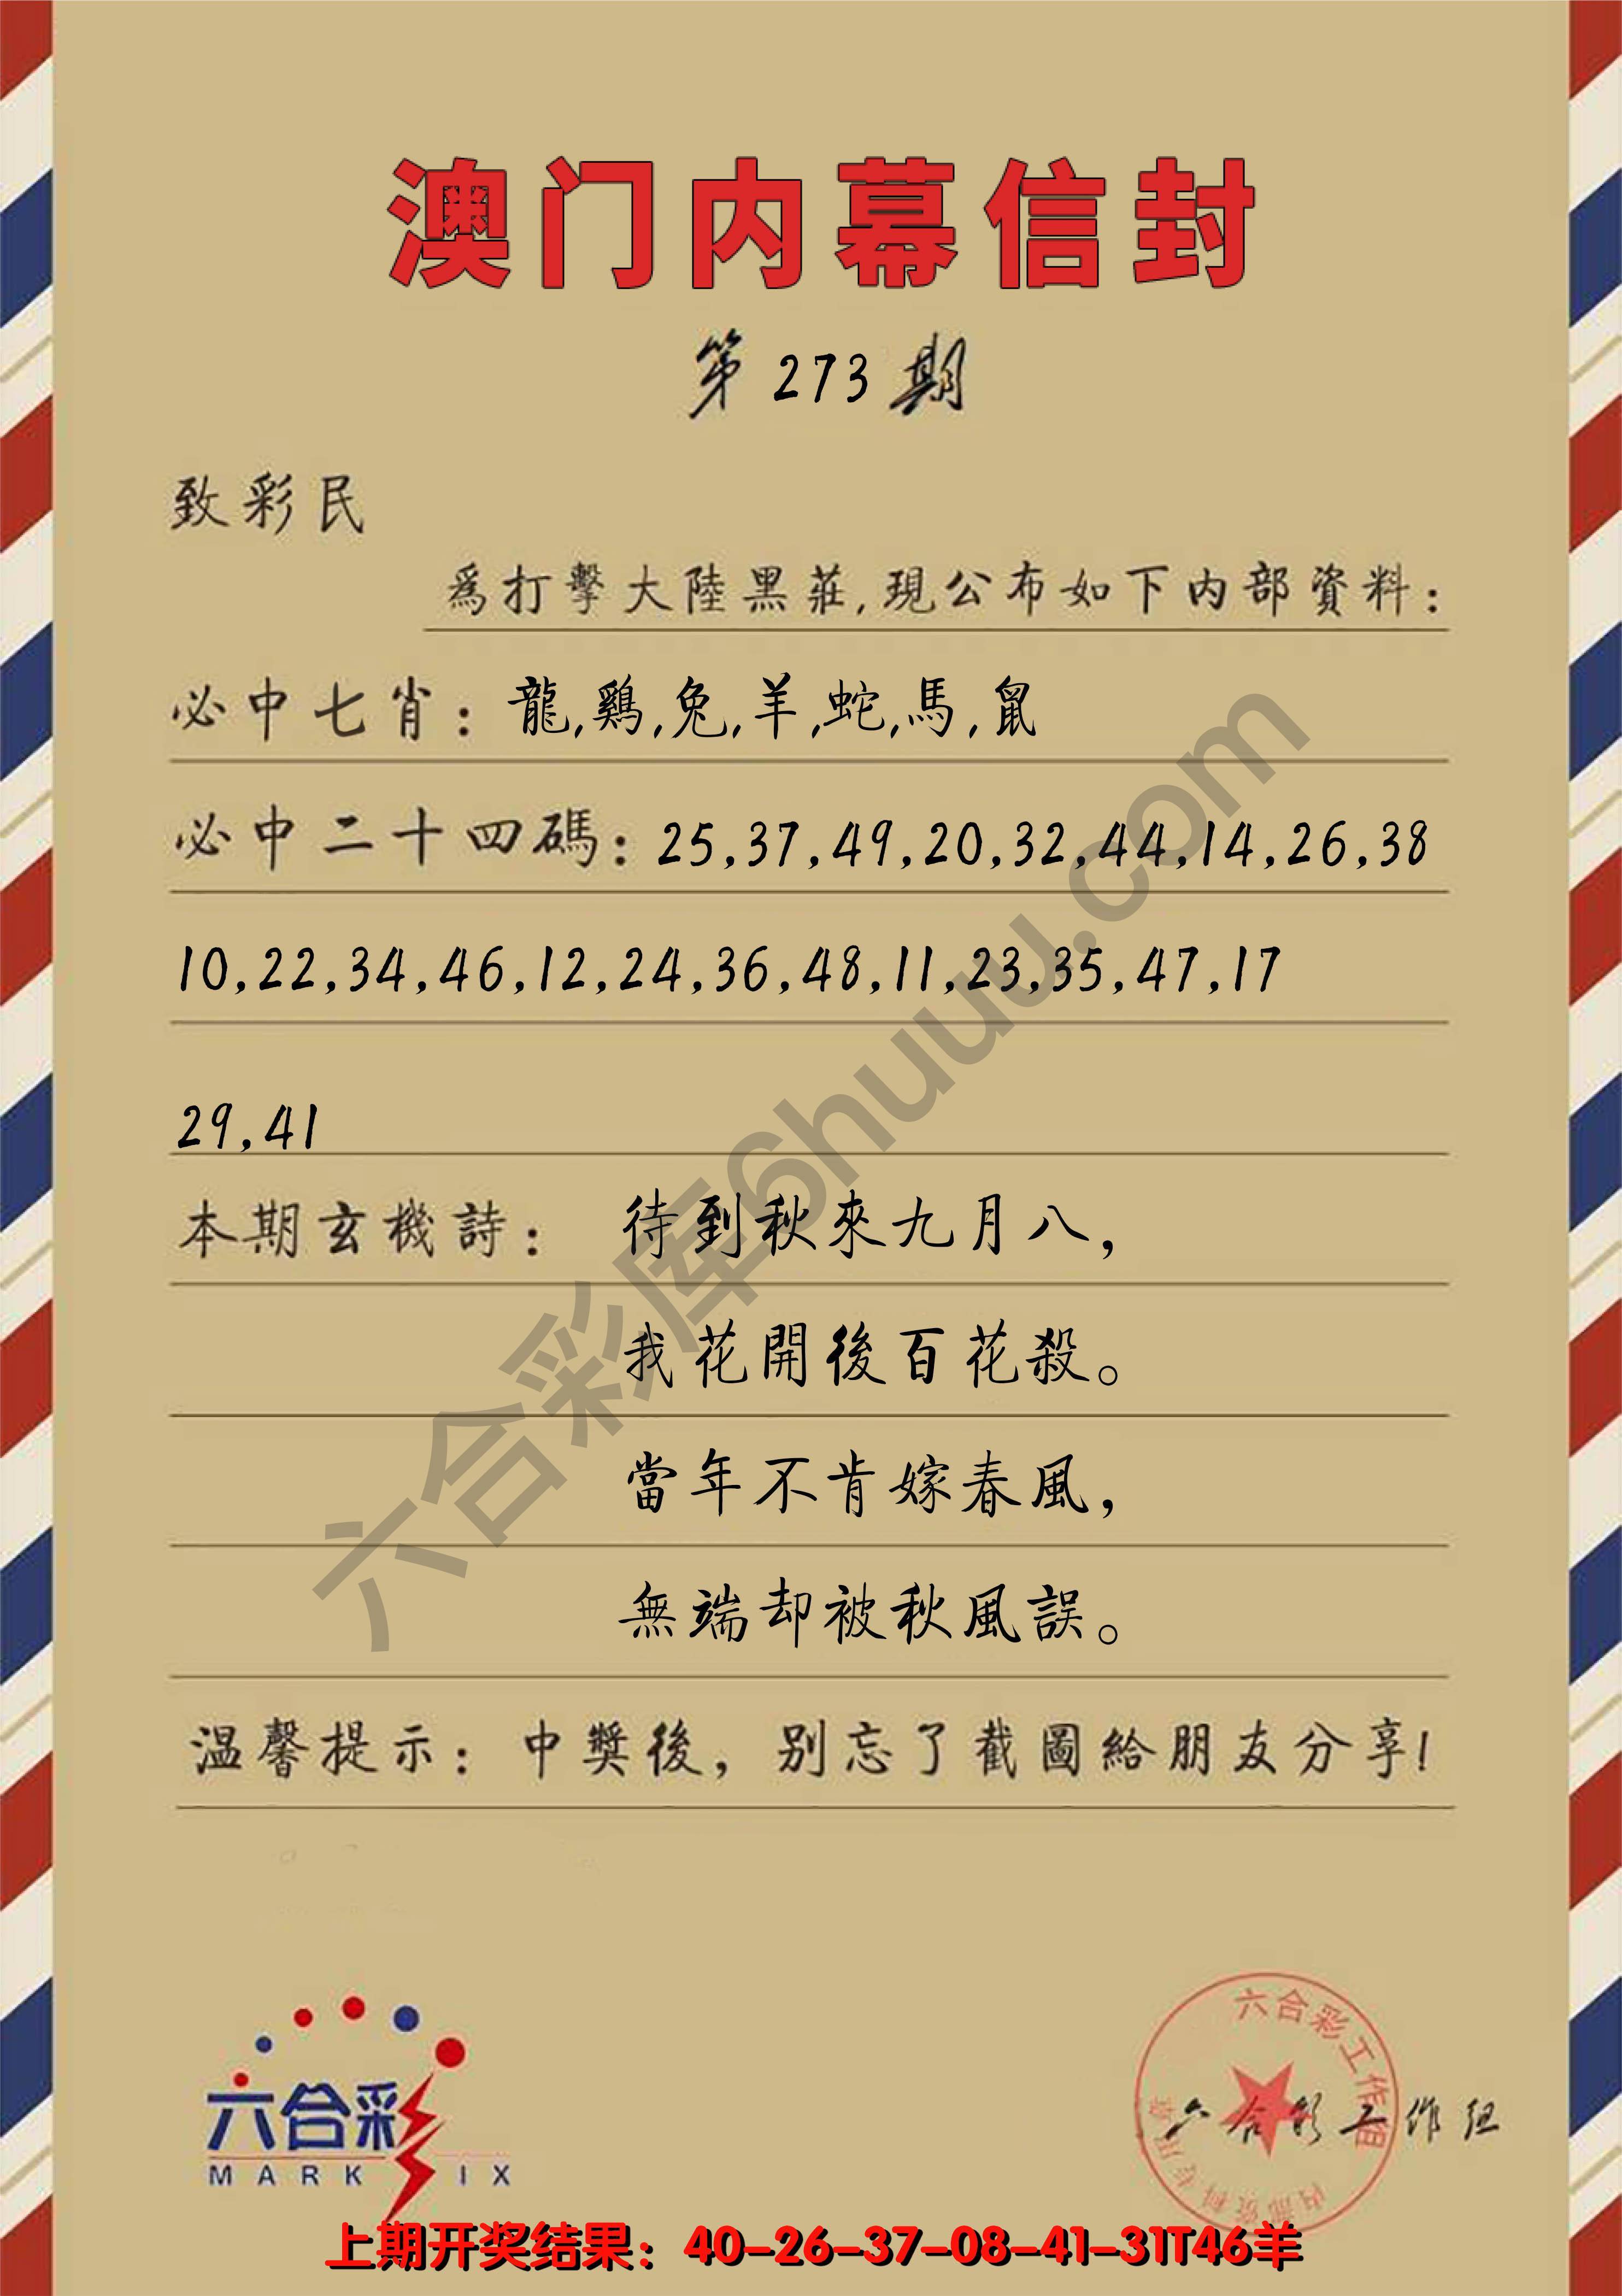 澳门内幕信封
第273期
致彩民
爲打擊大陸黑莊,現公布如下内部資料:
必中七肖: 龍,鷄,兔,羊,蛇,馬,鼠
必中二十四碼: 25,37,49,20,32,44,14,26,38
10,22,34,46,12,24,36,48,11,23,35,47,17
29,41
本期玄機詩: 待到秋來九月八,
我花開後百花殺。
當年不肯嫁春風,
無端却被秋風誤。
温馨提示: 中獎後, 别忘了截圖給朋友分享!
六合彩库6huuu.com
六合彩
MARK IX
六合彩工作组
内部资料专用章
六合彩工作组
上期开奖结果: 40-26-37-08-41-31T46羊